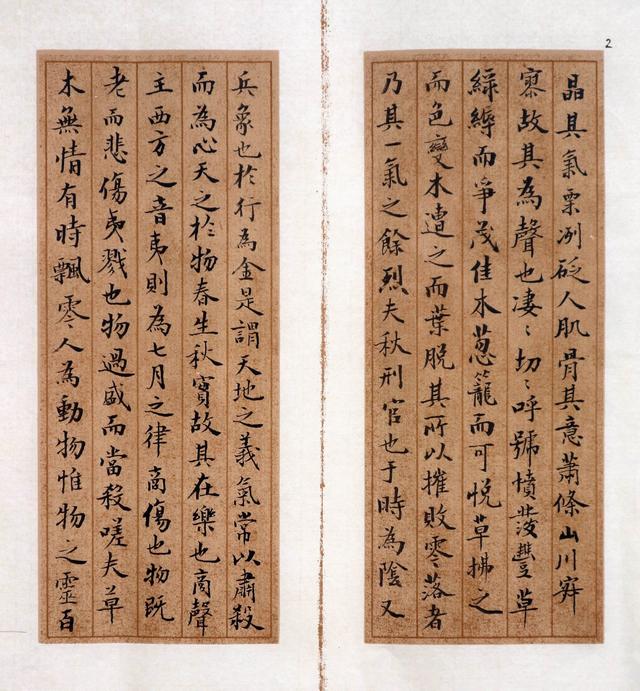 2
晶其氣栗冽砭人肌骨其意蕭條山川寂
寥故其為聲也凄〻切〻呼號憤發豐草
綠縟而爭茂佳木蔥籠而可悅草拂之
而色變木遭之而葉脫其所以摧敗零落者
乃其一氣之餘烈夫秋刑官也于時為陰又
兵象也於行為金是謂天地之義氣常以肅殺
而為心天之於物春生秋實故其在樂也商聲
主西方之音夷則為七月之律商傷也物既
老而悲傷夷戮也物過盛而當殺嗟夫草
木無情有時飄零人為動物惟物之靈百